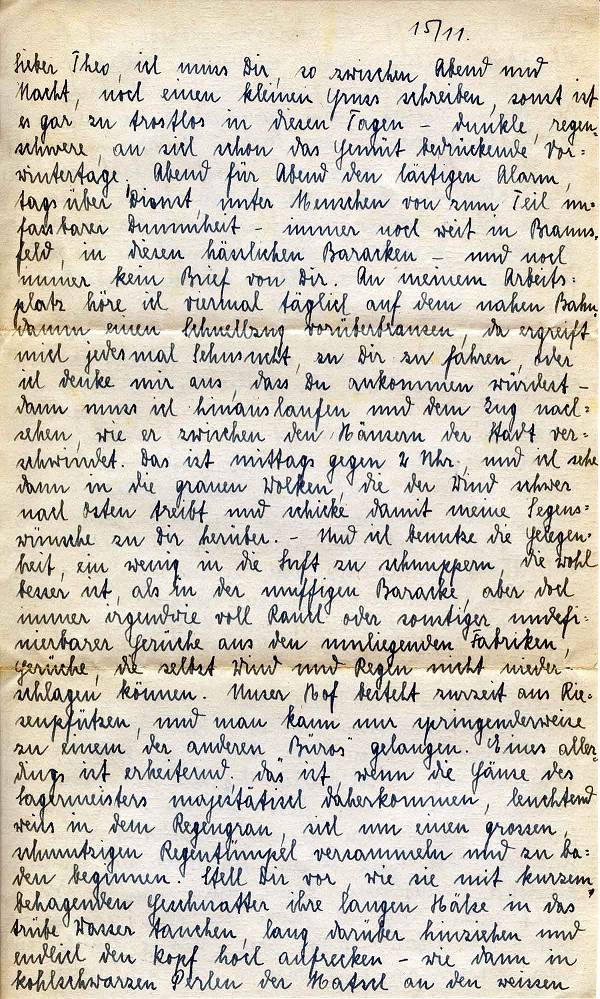 15/11.
Lieber Theo, ich muss Dir, so zwischen Abend und
Nacht, noch einen kleinen Gruss schreiben, sonst ist
es gar zu trostlos in diesen Tagen – dunkle, regen=
schwere, an sich schon das Gemüt bedrückende Vor=
wintertage. Abend für Abend den lästigen Alarm,
tags über Dienst, unter Menschen von zum Teil un=
fassbarer Dummheit – immer noch weit in Brauns=
feld, in diesen hässlichen Baracken – und noch
immer kein Brief von Dir. An meinem Arbeits=
platz höre ich viermal täglich auf dem nahen Bahn=
damm einen Schnellzug vorüberbrausen, da ergreift
mich jedesmal Sehnsucht, zu Dir zu fahren, oder
ich denke mir aus, dass Du ankommen würdest –
dann muss ich hinauslaufen und dem Zug nach=
sehen, wie er zwischen den Häusern der Stadt ver=
schwindet. Das ist mittags gegen 2 Uhr, und ich sehe
dann in die grauen Wolken, die der Wind schwer
nach Osten treibt und schicke damit meine Segens=
wünsche zu Dir herüber. – Und ich benutze die Gelegen=
heit, ein wenig in die Luft zu schnuppern, die wohl
besser ist, als in der muffigen Baracke, aber doch
immer irgendwie voll Rauch oder sonstiger undefi=
nierbarer Gerüche aus den umliegenden Fabriken,
Gerüche, die selbst Wind und Regen nicht nieder=
schlagen können. Unser Hof besteht zurzeit aus Rie=
senpfützen, und man kann nur springenderweise
zu einem der anderen "Büros" gelangen. Eines aller=
dings ist erheiternd, das ist, wenn die Gänse des
Lagermeisters majestätisch daherkommen, leuchtend
weiss in dem Regengrau, sich um einen grossen,
schmutzigen Regentümpel versammeln und zu ba=
den beginnen. Stell Dir vor, wie sie mit kurzem,
behagenden Geschnatter ihre langen Hälse in das
trübe Wasser tauchen, lang darüber hinziehen und
endlich den Kopf hoch aufrecken – wie dann in
kohlschwarzen Perlen der Matsch an den weissen